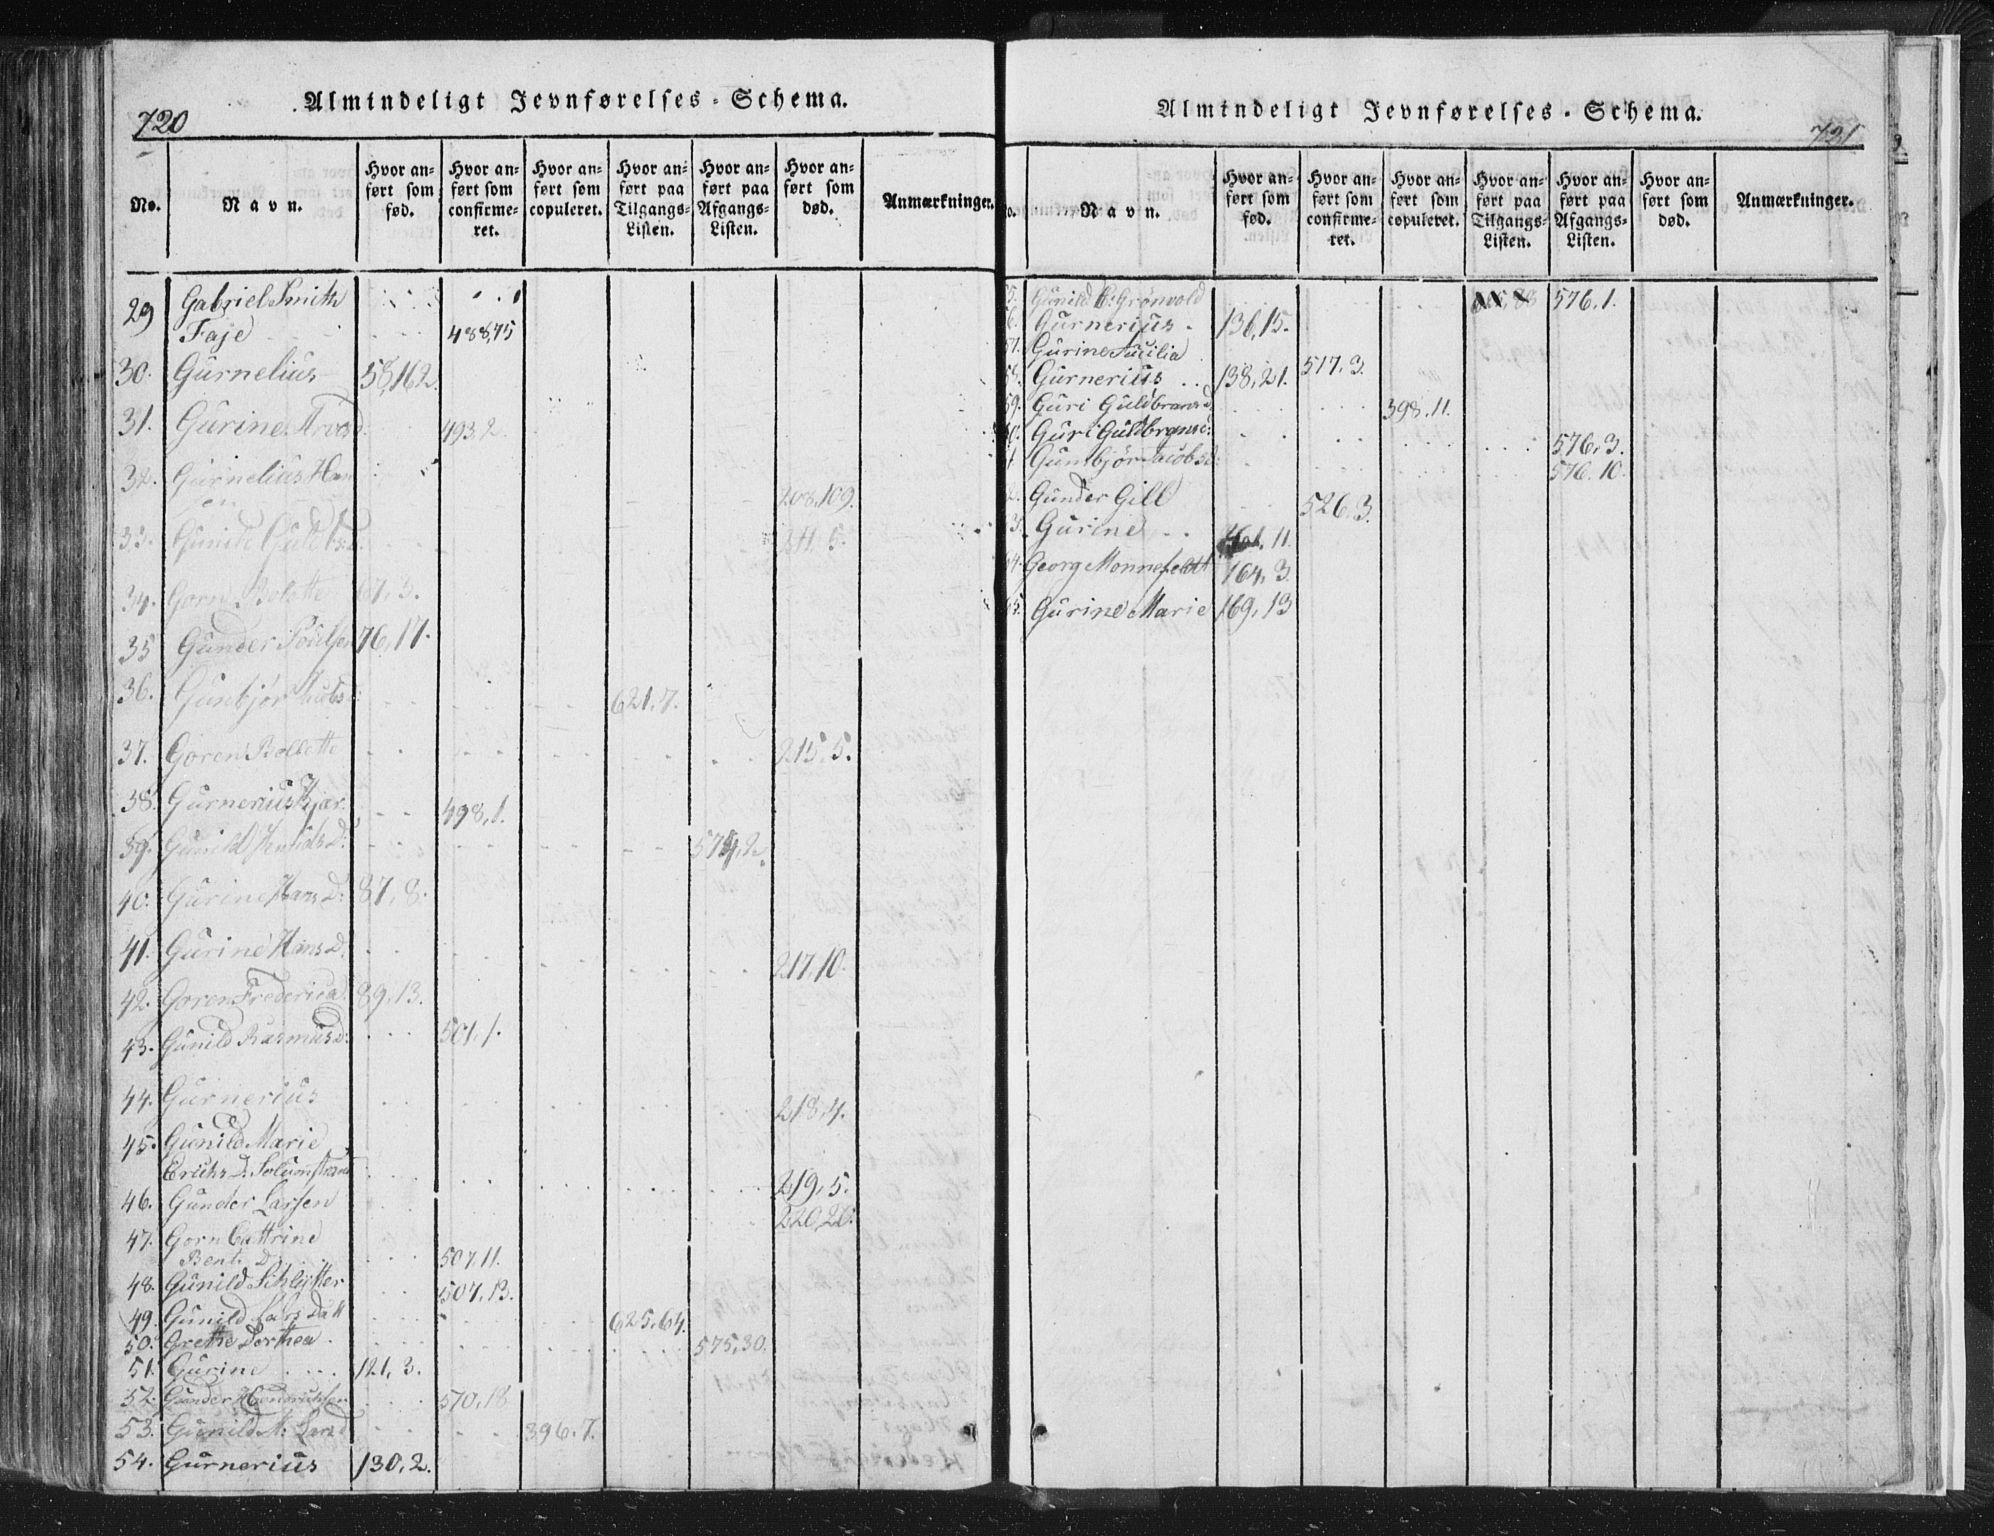 720
Almindeligt Jevnførelses-Schema.
No. Navn. Hvor anført som fød. Hvor anført som confirmeret. Hvor anført som copuleret. Hvor anført paa Tilgangs-Listen. Hvor anført paa Afgangs-Listen. Hvor anført som død. Anmærkninger.
29 Gabriel Smith
Faje 488,75
30. Gurnelius 58,162
31. Gurine 493.2
32. Gurnelius Han
sen 208,109.
33. Gunild 211. 5.
34. Goren Bolette 67,3.
35 Gunder Poulsen 76,17.
36. Gunbjør Jacobs: 621,7.
37. Goren Bollette 215,5.
38. Gurnerius Kjær 498,1.
39. Gunild Knuds D: 574,2.
40. Gurine Hans D: 87,8.
41. Gurine Hans D. 217,10.
42. Goren Frederica 89,13.
43. Gunild Rasmus D: 501,1.
44. Gurnerius 218,4.
45. Gunild Marie
Erichs D. 219,5.
46. Gunder Larsen 220,20.
47. Gorn Cattrine
Bent D. 507,11.
48. Gunild Schlytter 507,13.
49. Gunild Lars Datt 625,64.
50. Grethe Dorthea 575,30.
51. Gurine 121,3.
52. Gunder Hendrichsen 570,18
53. Gunild M. Lars D 396.7.
54. Gurnerius 130,2.
Almindeligt Jevnførelses-Schema.
721
No. Navn. Hvor anført som fød. Hvor anført som confirmeret. Hvor anført som copuleret. Hvor anført paa Tilgangs-Listen. Hvor anført paa Afgangs-Listen. Hvor anført som død. Anmærkninger.
5. Gunild B: Grønvold 576.1.
6. Gurnerius 136,15.
57. Gurine 517,3.
58. Gurnerius 138,21.
59. Guri Guldbransd 398.11.
60. Guri Guldbrans: 576,3.
Gunbjør Jacobs 576.10.
2. Gunder Gill 526,3.
3. Gurine 161,11
64. Georg Monnefeldt 164,3
65. Gurine Marie 169,13